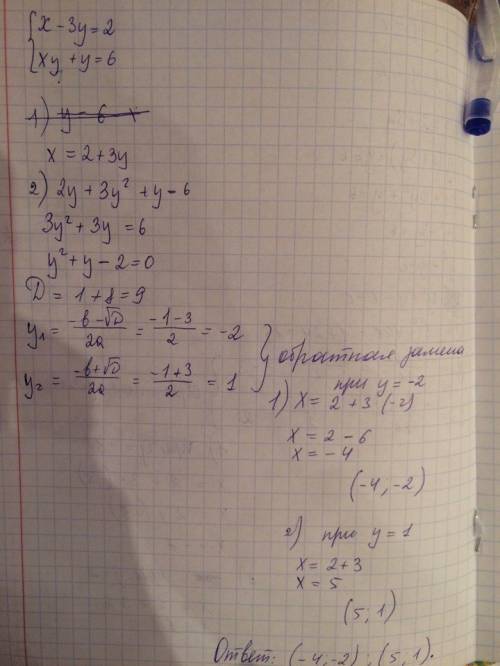 x - 3y = 2
xy + y = 6
1) y - 6 x
x = 2 + 3y
2) 2y + 3y² + y - 6
3y² + 3y = 6
y² + y - 2 = 0
D = 1 + 8 = 9
y₁ = (-b - √D)/2a = (-1 - 3)/2 = -2
y₂ = (-b + √D)/2a = (-1 + 3)/2 = 1
} обратная замена
при y = -2
1) x = 2 + 3 (-2)
x = 2 - 6
x = -4
(-4, -2)
2) при y = 1
x = 2 + 3
x = 5
(5; 1)
Ответ: (-4, -2); (5, 1).